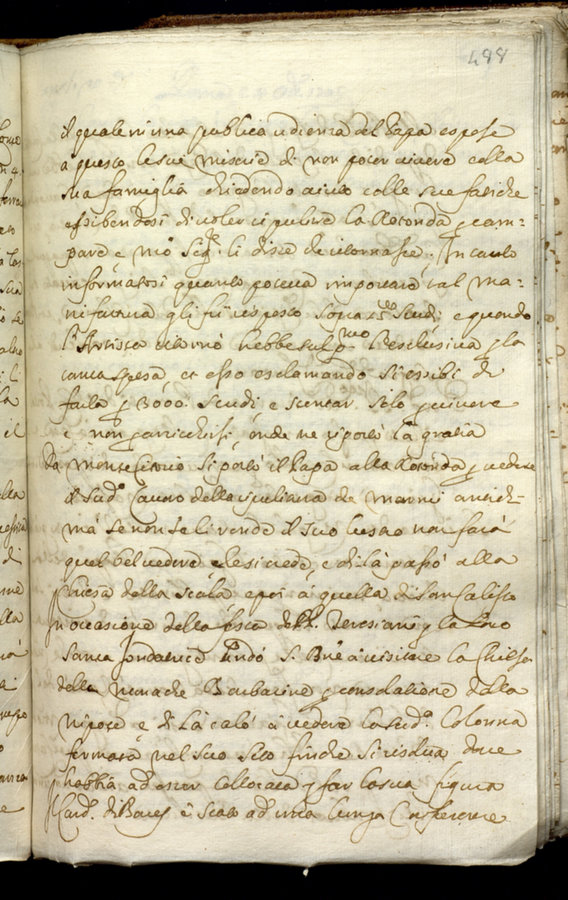 488
il quale in una publica udienza del Papa espose
a questo le sue miserie di non poter vivere colla
sua famiglia chiedendo aiuto colle sue fatiche
essibendosi di voler ripulire la Rotonda p cam-
pare e Nrõ Sigre li disse che ritornasse. In tanto
informatosi quanto poteva importare tal ma-
nifattura gli fù risposto sopra Scudi e quando
l'Artista ritornò hebbe sul pmo l'esclusiva p la
tanta spesa, et esso esclamando si essibì di
farla p 3000. scudi e stentar solo p vivere
e non p arricchirsi, onde ne riportò la gratia
Da Monte Citorio si portò il Papa alla Rotonda p vedere
il sudo lavoro della ripulitura de marmi antichi
mà se non se li rende il suo lustro non farà
quel bel vedere che si crede, e di là passò alla
Chiesa della Scala e poi à quella di San Calisto
in occasione della festa delle Teresiane p la loro
Santa fondatrice andò S. Bne à visitare la Chiesa
delle Monache Barbarine p consolatione della
Nipote e di là calò à vedere la suda Colonna
fermata nel suo sito finche si risolva dove
habbia ad esser collocata p far la sua figura
Il Card. di è stato ad una lunga Conferenza